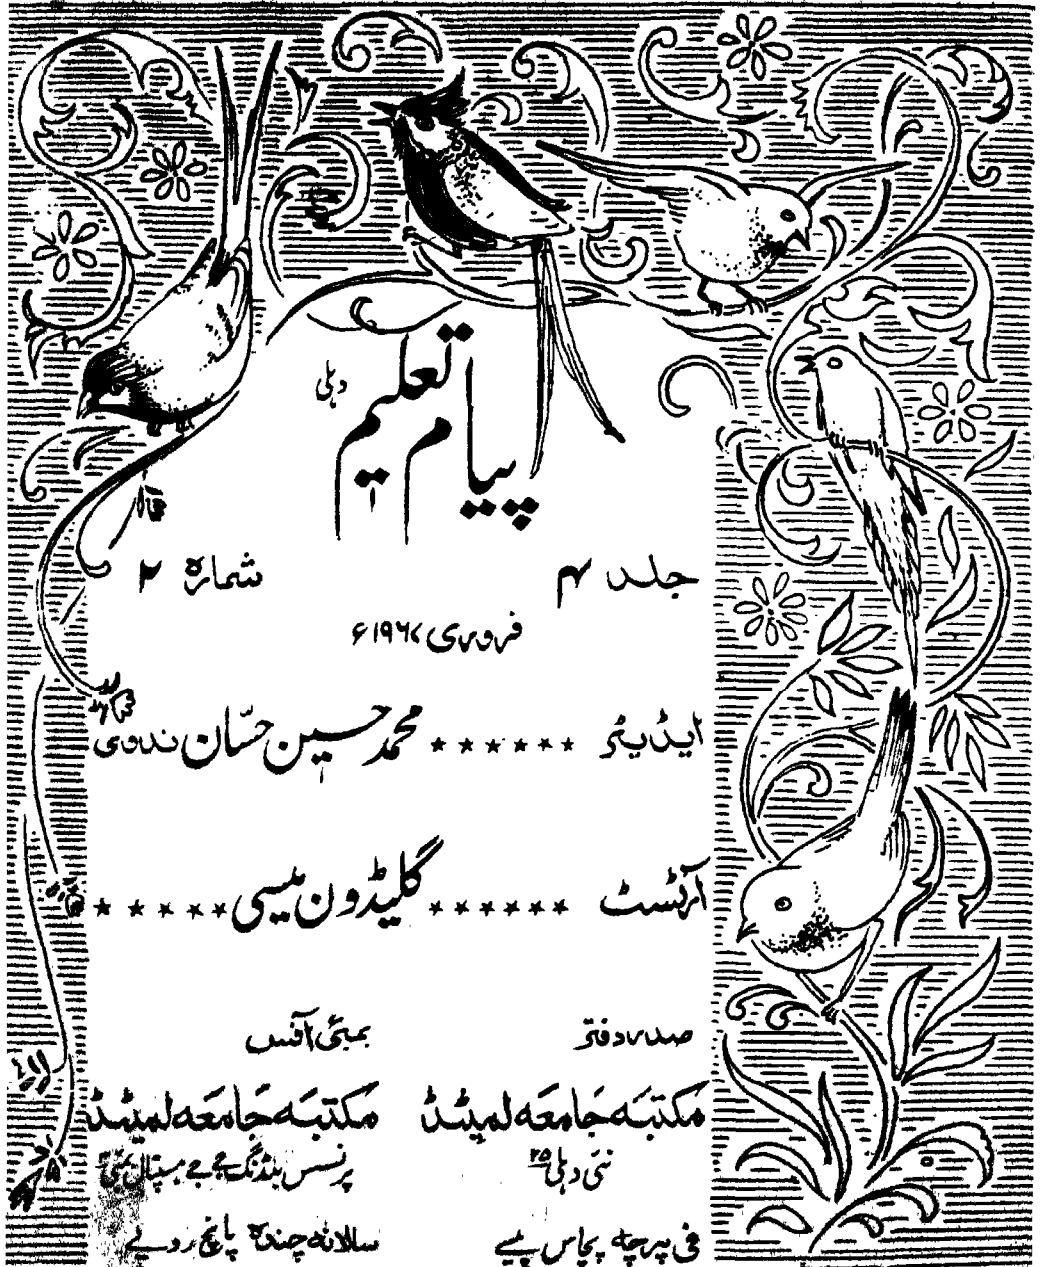 پیام تعلیم دہلی
جلد ۴ شمارہ ۲
فروری ۱۹۶۷ء
ایڈیٹر ****** محمد حسین حسّان ندوی
آرٹسٹ ****** گلیڈون میسی *****
صدر دفتر
مکتبہ جامعہ لمیٹڈ
نئی دہلی ۲۵
بمبئی آفس
مکتبہ جامعہ لمیٹڈ
پرنسس بلڈنگ جے جے ہسپتال بمبئی
فی پرچہ پچاس پیسے
سالانہ چندہ پانچ روپے